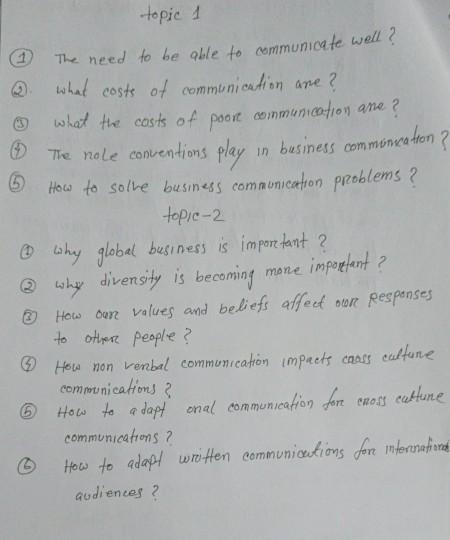 topic 1
① The need to be able to communicate well ?
②. what costs of communication are ?
③ what the costs of poor communication are ?
④ The role conventions play in business communication ?
⑤ How to solve business communication problems ?
topic-2
① why global business is important ?
② why diversity is becoming more important ?
③ How our values and beliefs affect our Responses
to other people ?
④ How non verbal communication impacts cross culture
communications ?
⑤ How to adapt oral communication for cross culture
communications ?
⑥ How to adapt written communications for international
audiences ?